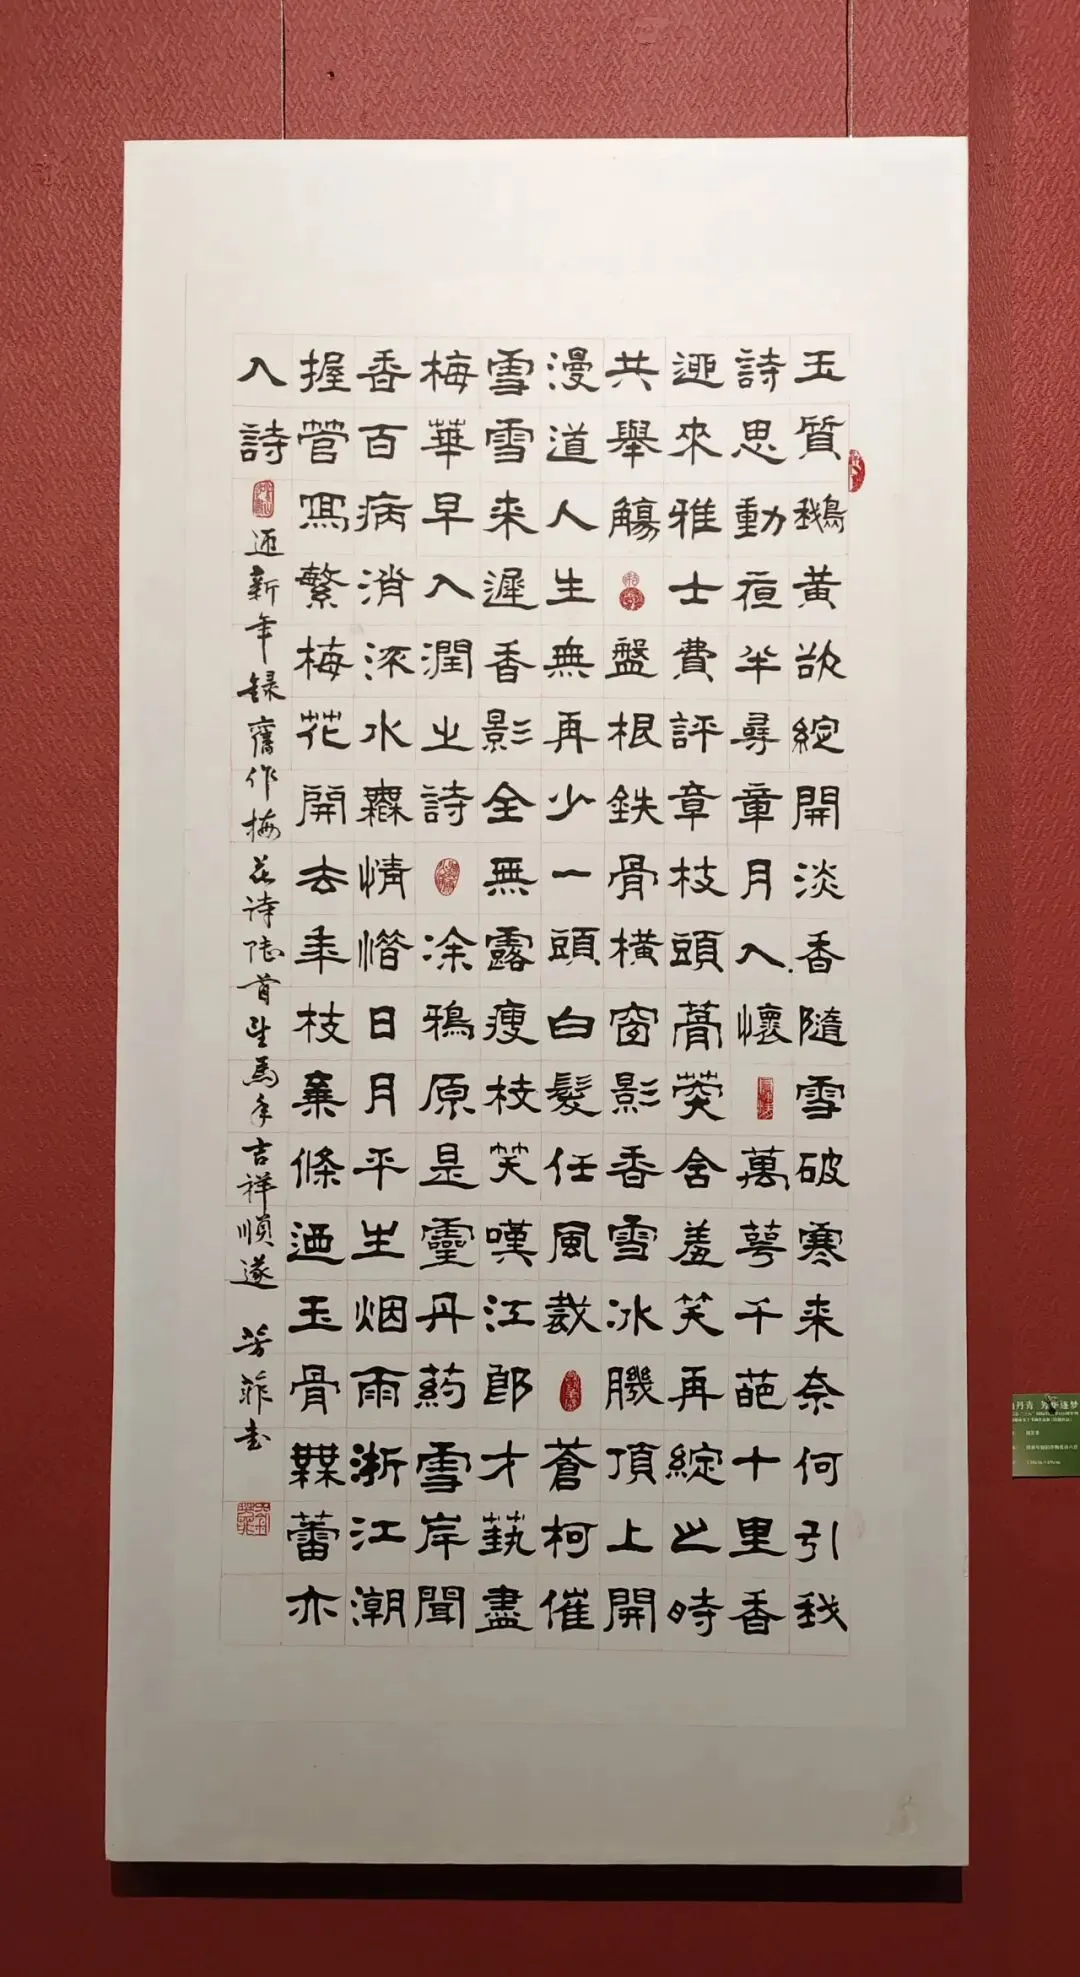 玉質鵝黃欲綻開淡香隨雪破寒来奈何引我
詩思動夜半尋章月入懷萬萼千葩十里香
迎來雅士費評章枝頭菁葖含羞笑再綻之時
共舉觴盤根鉄骨橫窗影香雪冰肌頂上開
漫道人生無再少一頭白髮任風裁蒼柯催
雪雪来遲香影全無露瘦枝笑嘆江郎才藝盡
梅華早入潤之詩涂鴉原是靈丹药雪岸聞
香百病消深水無情惜日月平生烟雨浙江潮
握管寫繁梅花開去年枝棄條迺玉骨鞢蕾亦
入詩
迎新年録舊作梅花诗陆首望馬年吉祥順遂
芳菲書
丹青 芳华逐梦